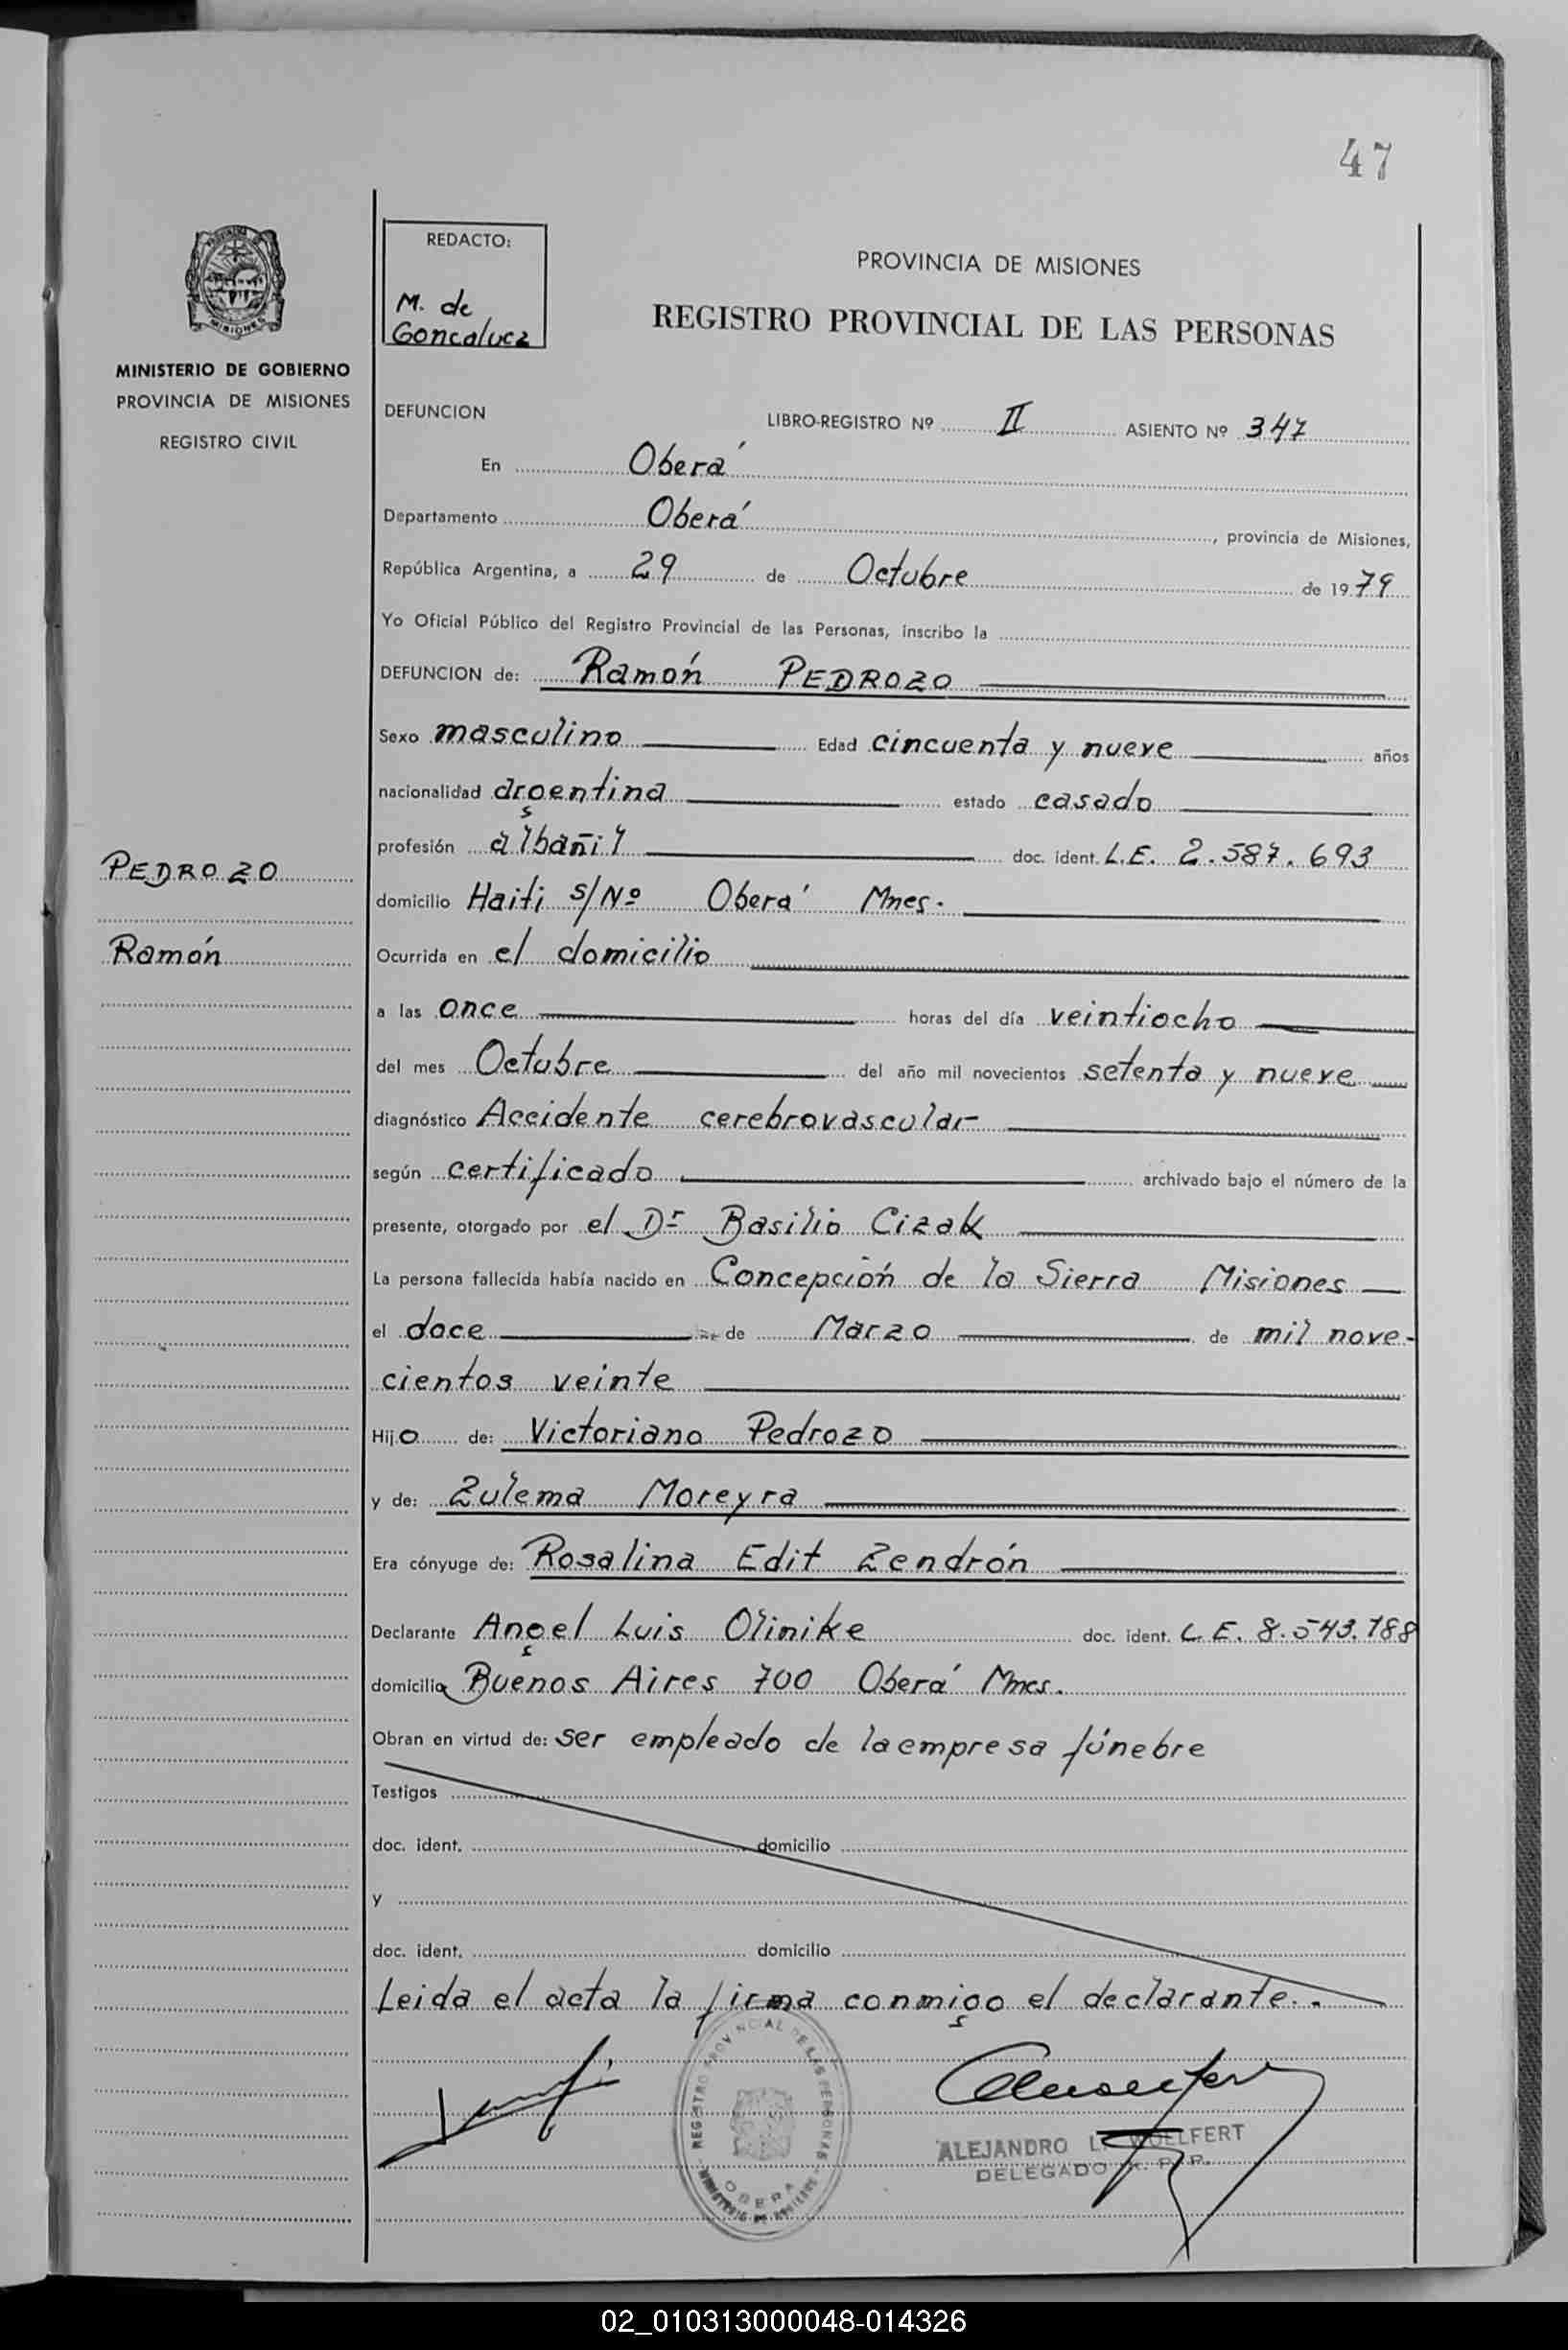 47
REDACTO:
M. de
Goncalvez
PROVINCIA DE MISIONES
REGISTRO PROVINCIAL DE LAS PERSONAS
MINISTERIO DE GOBIERNO
PROVINCIA DE MISIONES
REGISTRO CIVIL
DEFUNCION LIBRO-REGISTRO Nº II ASIENTO Nº 347
En Oberá
Departamento Oberá, provincia de Misiones,
República Argentina, a 29 de Octubre de 1979
Yo Oficial Público del Registro Provincial de las Personas, inscribo la
DEFUNCION de: Ramón PEDROZO
Sexo masculino Edad cincuenta y nueve años
nacionalidad argentina estado casado
profesión albañil doc. ident. L.E. 2.587.693
PEDROZO
domicilio Haiti s/Nº Oberá Mnes.
Ramón
Ocurrida en el domicilio
a las once horas del día veintiocho
del mes Octubre del año mil novecientos setenta y nueve
diagnóstico Accidente cerebrovascular
según certificado archivado bajo el número de la
presente, otorgado por el Dr Basilio Cizak
La persona fallecida había nacido en Concepción de la Sierra Misiones
el doce de Marzo de mil nove-
cientos veinte
Hijo de: Victoriano Pedrozo
y de: Zulema Moreyra
Era cónyuge de: Rosalina Edit Zendrón
Declarante Angel Luis Olinike doc. ident. L.E. 8.543.788
domicilio Buenos Aires 700 Oberá Mnes.
Obran en virtud de: ser empleado de la empresa fúnebre
Testigos
doc. ident. domicilio
y
doc. ident. domicilio
Leida el acta la firma conmigo el declarante..
REGISTRO PROVINCIAL DE LAS PERSONAS
OBERA
ALEJANDRO L. WOELFERT
DELEGADO R. P. P.
02_010313000048-014326